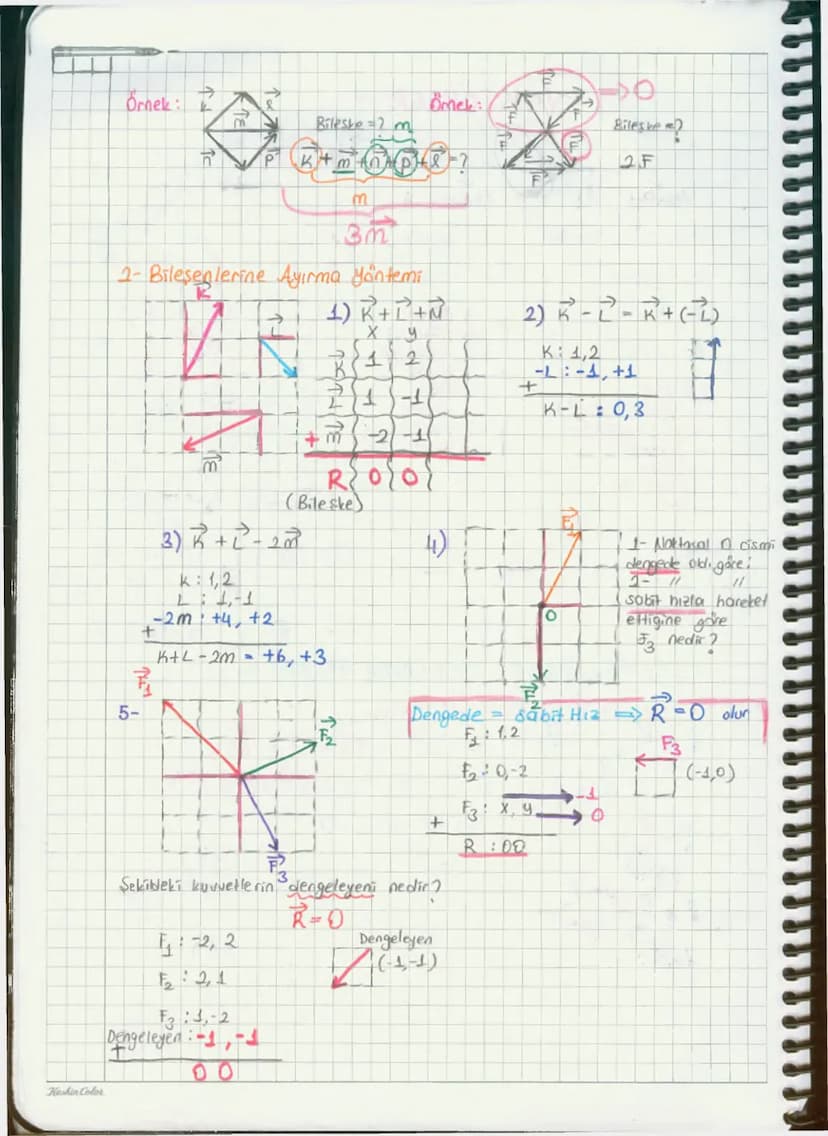 Örnek:
k l
m
n p
Bileşke=? m
k + m + n + p + l = ?
m
3m
Örnek:
F → 0
F F
F F
F
Bileşke=?
2F
2- Bileşenlerine Ayırma Yöntemi
K
L
m
1) K + L + M
x y
K 1 2
L 1 -1
+ m -2 -1
R 0 0
(Bileşke)
2) K - L = K + (-L)
K : 1,2
-L : -1, +1
+
K-L : 0,3
3) K + L - 2m
K : 1,2
L : 1,-1
-2m : +4, +2
+
K+L-2m = +6, +3
4)
F1
O
F2
1- Noktasal O cismi
dengede old. göre;
2- " "
sabit hızla hareket
ettiğine göre
F3 nedir?
Dengede = Sabit Hız ⇒ R = 0 olur
F1 : 1,2
F2 : 0,-2
F3 : x, y → -1
→ 0
+
R : 00
F3
(-1,0)
5-
F1
F2
F3
Şekildeki kuvvetlerin dengeleyeni nedir?
R = 0
F1 : -2, 2
F2 : 2,1
F3 : 1,-2
Dengeleyen : -1, -1
+
0 0
Dengeleyen
(-1,-1)
Keskin Color